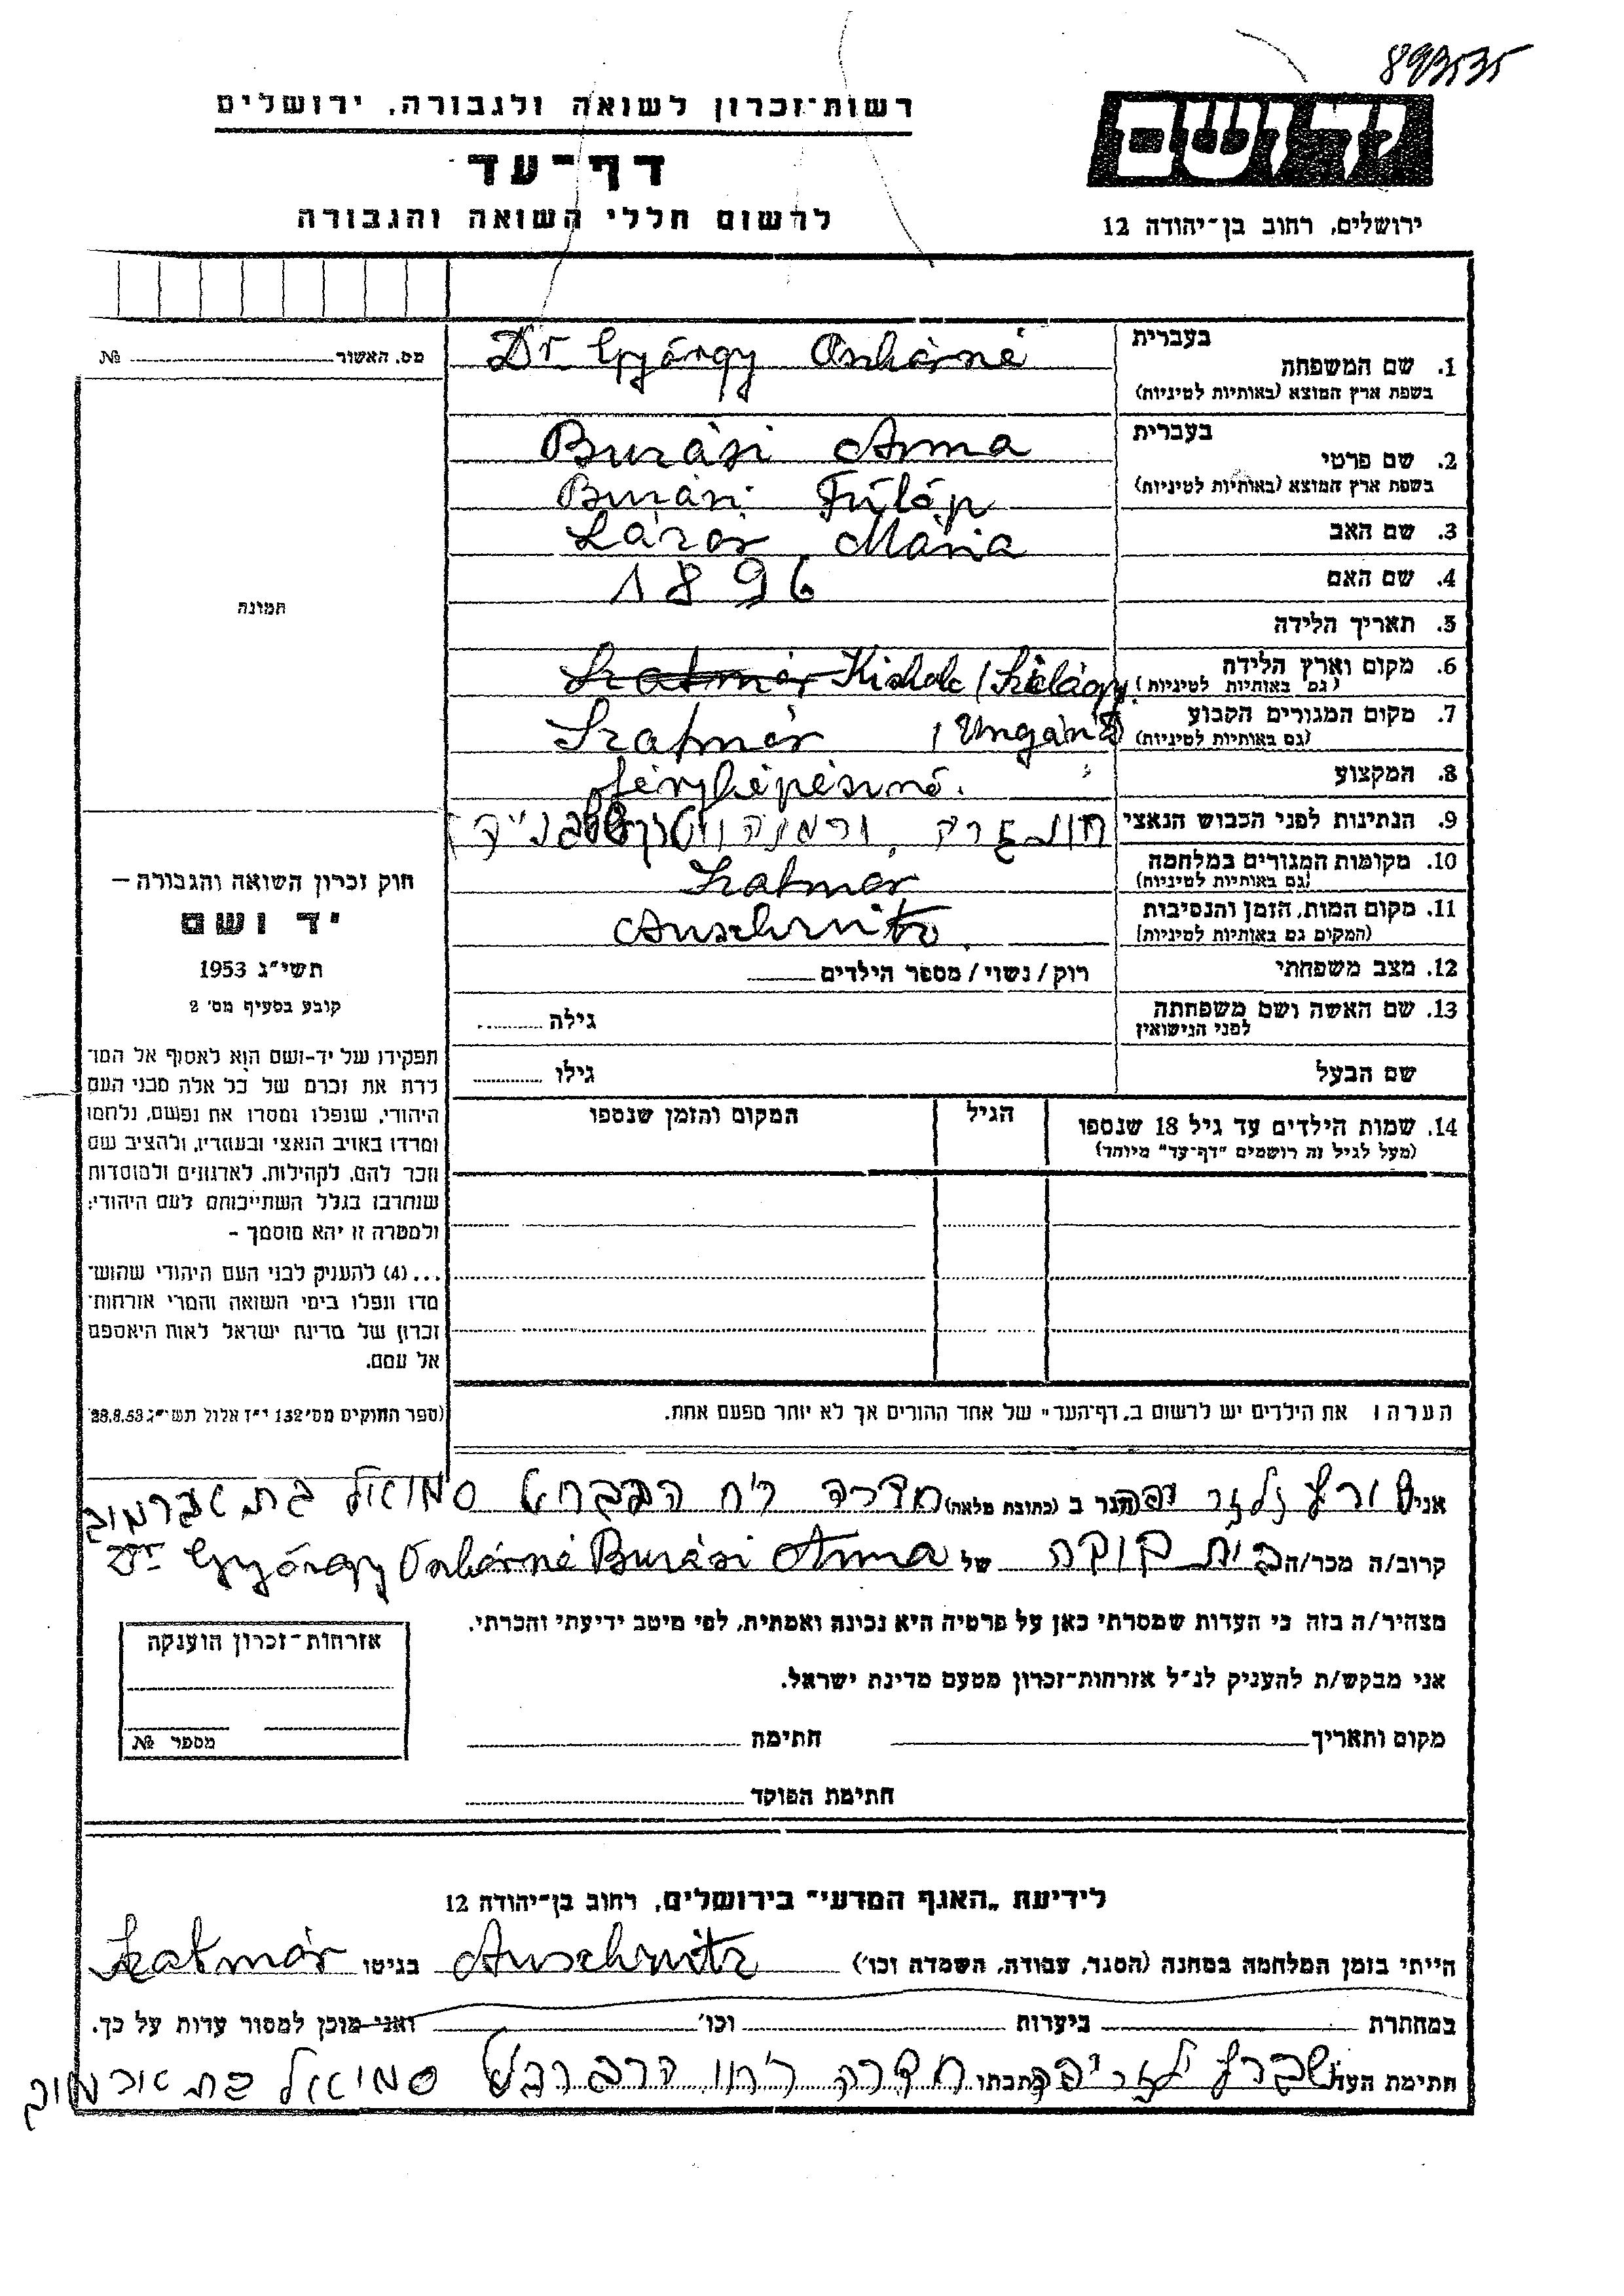 893535
רשות-זכרון לשואה ולגבורה, ירושלים
דף-עד
לרשום חללי השואה והגבורה
יד ושם
ירושלים, רחוב בן-יהודה 12
מס. האשור № 
בעברית
1. שם המשפחה Dr György Oszkárné
בשפת ארץ המוצא (באותיות לטיניות)
בעברית
2. שם פרטי Burási Anna
בשפת ארץ המוצא (באותיות לטיניות) Burási Fülöp
3. שם האב Lázár Mária
4. שם האם 1896
5. תאריך הלידה
6. מקום וארץ הלידה Szatmár (Szilágy
(גם באותיות לטיניות)
7. מקום המגורים הקבוע Szatmár
(גם באותיות לטיניות)
8. המקצוע fényképésznő.
9. הנתינות לפני הכבוש הנאצי
10. מקומות המגורים במלחמה Szatmár
(גם באותיות לטיניות)
11. מקום המות, הזמן והנסיבות Auschwitz.
(המקום גם באותיות לטיניות)
12. מצב משפחתי רוק/נשוי/מספר הילדים
13. שם האשה ושם משפחתה גילה
לפני הנישואין
שם הבעל גילו
14. שמות הילדים עד גיל 18 שנספו הגיל המקום והזמן שנספו
(מעל לגיל זה רושמים "דף-עד" מיוחד)
הערה: את הילדים יש לרשום ב"דף-העד" של אחד ההורים אך לא יותר מפעם אחת.
תמונה
חוק זכרון השואה והגבורה —
יד ושם
תשי"ג 1953
קובע בסעיף מס' 2
תפקידו של יד-ושם הוא לאסוף אל המו־
לדת את זכרם של כל אלה מבני העם
היהודי, שנפלו ומסרו את נפשם, נלחמו
ומרדו באויב הנאצי ובעוזריו, ולהציב שם
וזכר להם, לקהילות, לארגונים ולמוסדות
שנחרבו בגלל השתייכותם לעם היהודי;
ולמטרה זו יהא מוסמך -
...(4) להעניק לבני העם היהודי שהוש־
מדו ונפלו בימי השואה והמרי אזרחות־
זכרון של מדינת ישראל לאות היאספם
אל עמם.
(ספר החוקים מס' 132 י"ז אלול תשי"ג 28.8.53
אני הגר ב (כתובת מלאה) חדרה סמואל
קרוב/ה מכר/ה של Dr György Oszkárné Burási Anna
מצהיר/ה בזה כי העדות שמסרתי כאן על פרטיה היא נכונה ואמתית, לפי מיטב ידיעתי והכרתי.
אני מבקש/ת להעניק לנ"ל אזרחות-זכרון מטעם מדינת ישראל.
מקום ותאריך חתימה
חתימת הפוקד
אזרחות-זכרון הוענקה
מספר №
לידיעת „האגף המדעי" בירושלים, רחוב בן-יהודה 12
הייתי בזמן המלחמה במחנה (הסגר, עבודה, השמדה וכו') Auschwitz בגיטו Szatmár
במחתרת ביערות וכו' ואני מוכן למסור עדות על כך.
חתימת העד כתבתו חדרה סמואל